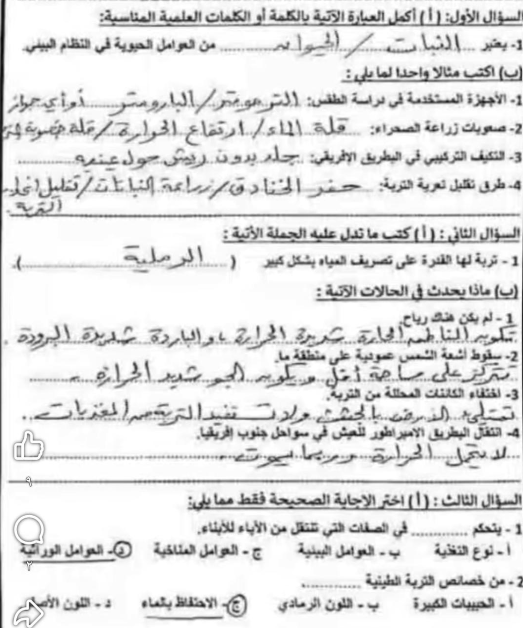 السؤال الأول: (أ) أكمل العبارة الآتية بالكلمة أو الكلمات العلمية المناسبة:
1- يعتبر ...النبات / الحيوان... من العوامل الحيوية في النظام البيئي
(ب) اكتب مثالا واحدا لما يلي:
1- الأجهزة المستخدمة في دراسة الطقس: الترمومتر / البارومتر أو أي جهاز
2- صعوبات زراعة الصحراء: قلة الماء / ارتفاع الحرارة / قلة خصوبة
3- التكيف التركيبي في البطريق الإفريقي: جلد بدون ريش حول عينيه
4- طرق تقليل تعرية التربة: حفر الخنادق / زراعة النباتات / تقليل
التربة.
السؤال الثاني: (أ) كتب ما تدل عليه الجملة الآتية:
1- تربة لها القدرة على تصريف المياه بشكل كبير (...الرملية...).
(ب) ماذا يحدث في الحالات الآتية:
1- لم يكن هناك رياح.
تكون المناطق الحارة شديدة الحرارة، والباردة شديدة البرودة.
2- سقوط أشعة الشمس عمودية على منطقة ما.
تتركز على مساحة أقل ويكون الجو شديد الحرارة
3- اختفاء الكائنات المحللة من التربة.
تمتلئ الأرض بالجثث ولا تستفيد التربة من المغذيات.
4- انتقال البطريق الإمبراطور للعيش في سواحل جنوب إفريقيا.
لا يتحمل الحرارة وربما يموت
السؤال الثالث: (أ) اختر الإجابة الصحيحة فقط مما يلي:
1- يتحكم ............ في الصفات التي تنتقل من الآباء للأبناء.
أ- نوع التغذية ب- العوامل البيئية ج- العوامل المناخية د- العوامل الوراثية
2- من خصائص التربة الطينية ............
أ- الحبيبات الكبيرة ب- اللون الرمادي ج- الاحتفاظ بالماء د- اللون